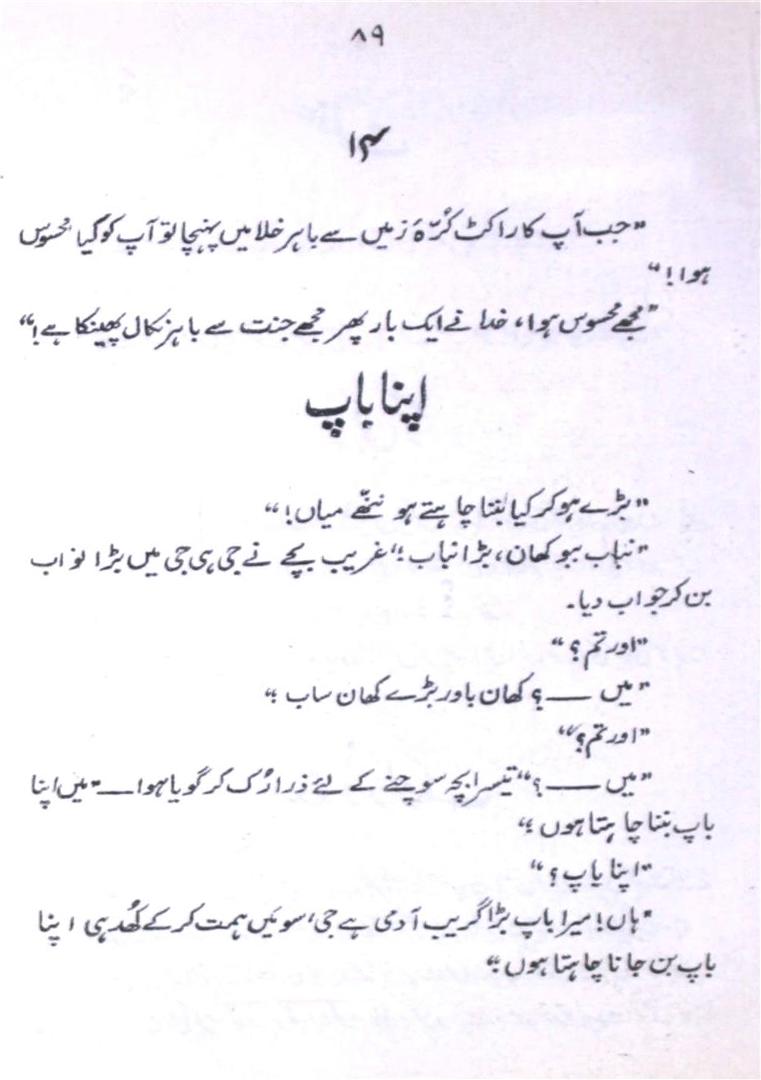 ۸۹
۱۴
"جب آپ کا راکٹ کُرۂ زمیں سے باہر خلا میں پہنچا تو آپ کو کیا محسوس
ہوا!"
"مجھے محسوس ہوا، خدا نے ایک بار پھر مجھے جنت سے باہر نکال پھینکا ہے!"
اپنا باپ
"بڑے ہو کر کیا بننا چاہتے ہو ننھّے میاں!"
"نباب ببو کھان، بڑا نباب!" غریب بچے نے جی ہی جی میں بڑا نواب
بن کر جواب دیا۔
"اور تم؟"
"میں ——؟ کھان باور بڑے کھان ساب!"
"اور تم؟"
"میں ——؟" تیسرا بچہ سوچنے کے لئے ذرا رُک کر گویا ہوا —— "میں اپنا
باپ بننا چاہتا ہوں!"
"اپنا باپ؟"
"ہاں! میرا باپ بڑا گریب آدمی ہے جی، سو میں ہمت کر کے کھُد ہی اپنا
باپ بن جانا چاہتا ہوں!"